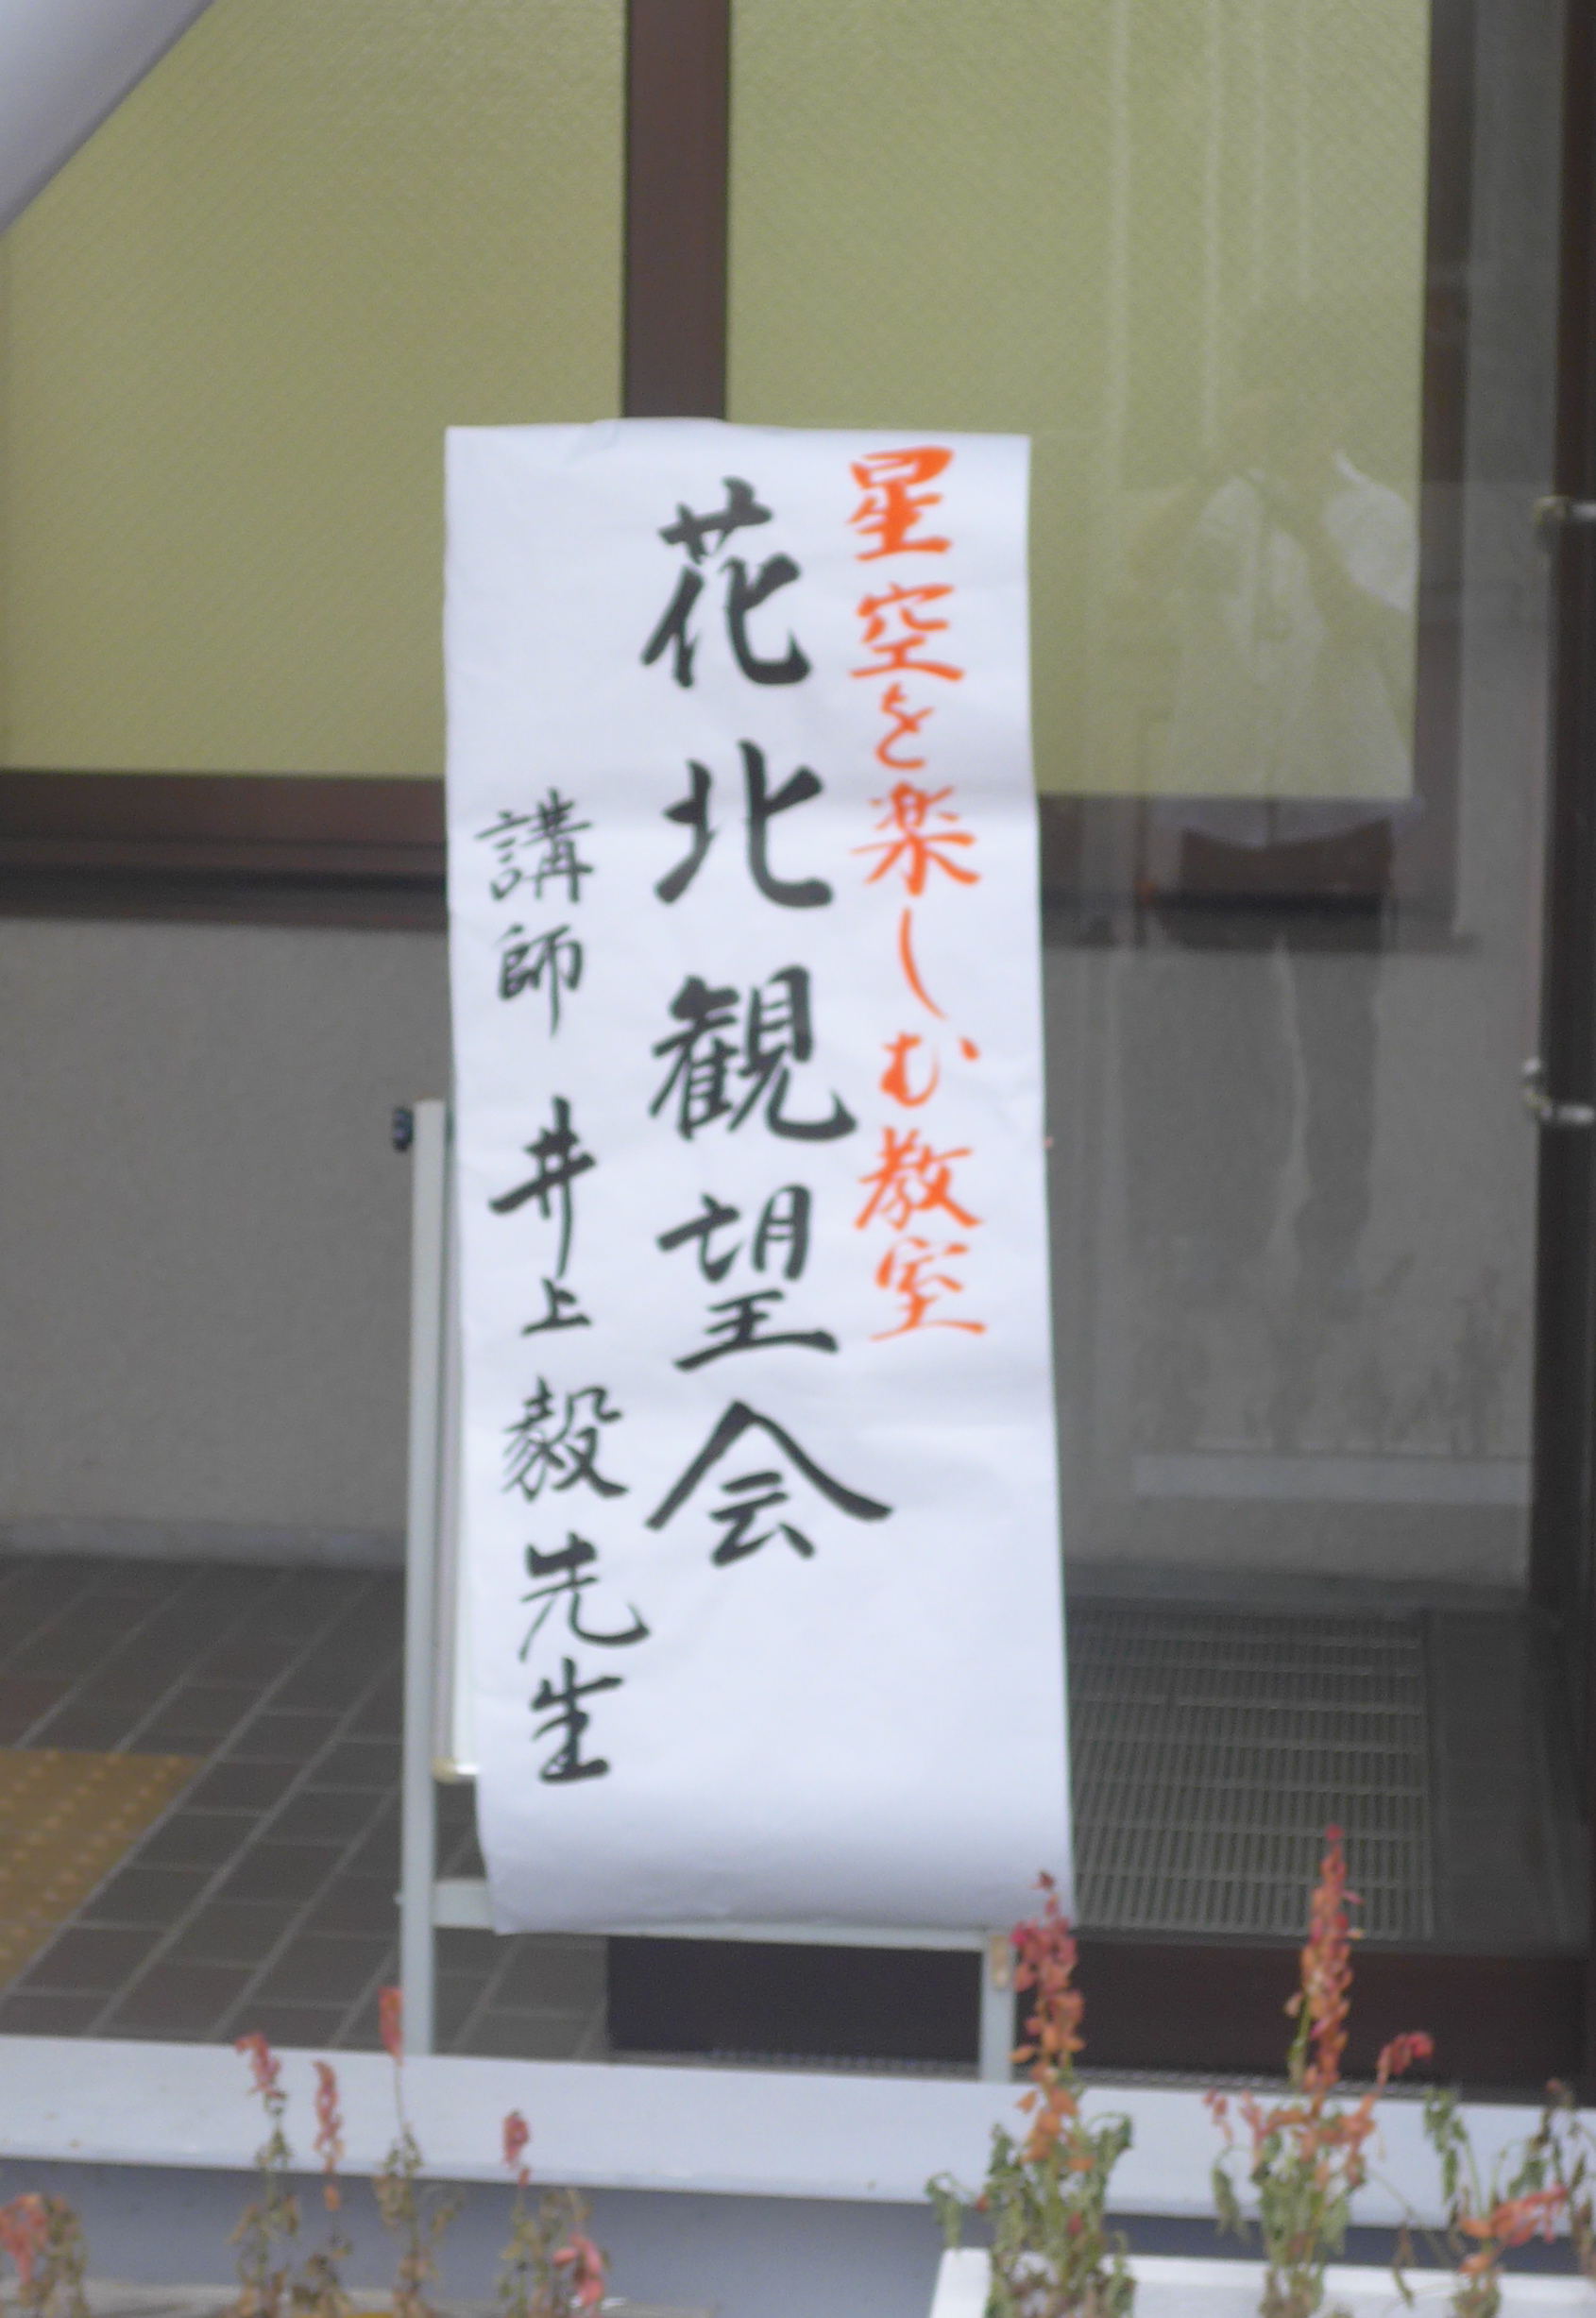 星空を楽しむ教室
花北観望会
講師 井上 毅 先生